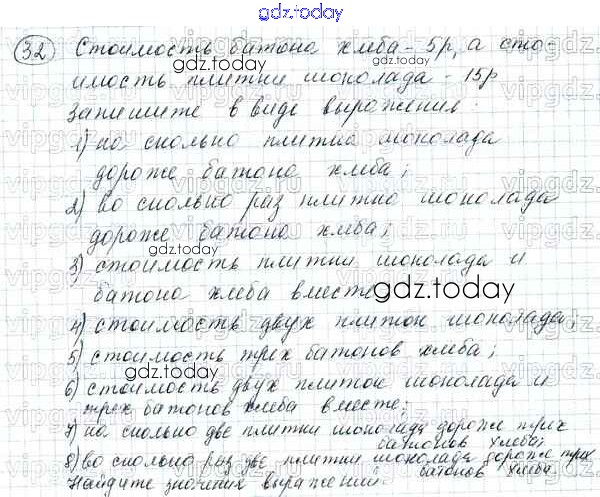 gdz.today
32 Стоимость батона хлеба - 5р, а сто-
имость плитки шоколада - 15р
gdz.today
Запишите в виде выражения:
1) на сколько плитка шоколада
дороже батона хлеба;
2) во сколько раз плитка шоколада
дороже батона хлеба;
gdz.today
3) стоимость плитки шоколада и
батона хлеба вместе
gdz.today
4) стоимость двух плиток шоколада
5) стоимость трех батонов хлеба;
gdz.today
6) стоимость двух плиток шоколада и
трех батонов хлеба вместе;
7) на сколько две плитки шоколада дороже трех
батонов хлеба;
8) во сколько раз две плитки шоколада дороже трех
батонов хлеба.
Найдите значения выражений.
gdz.today